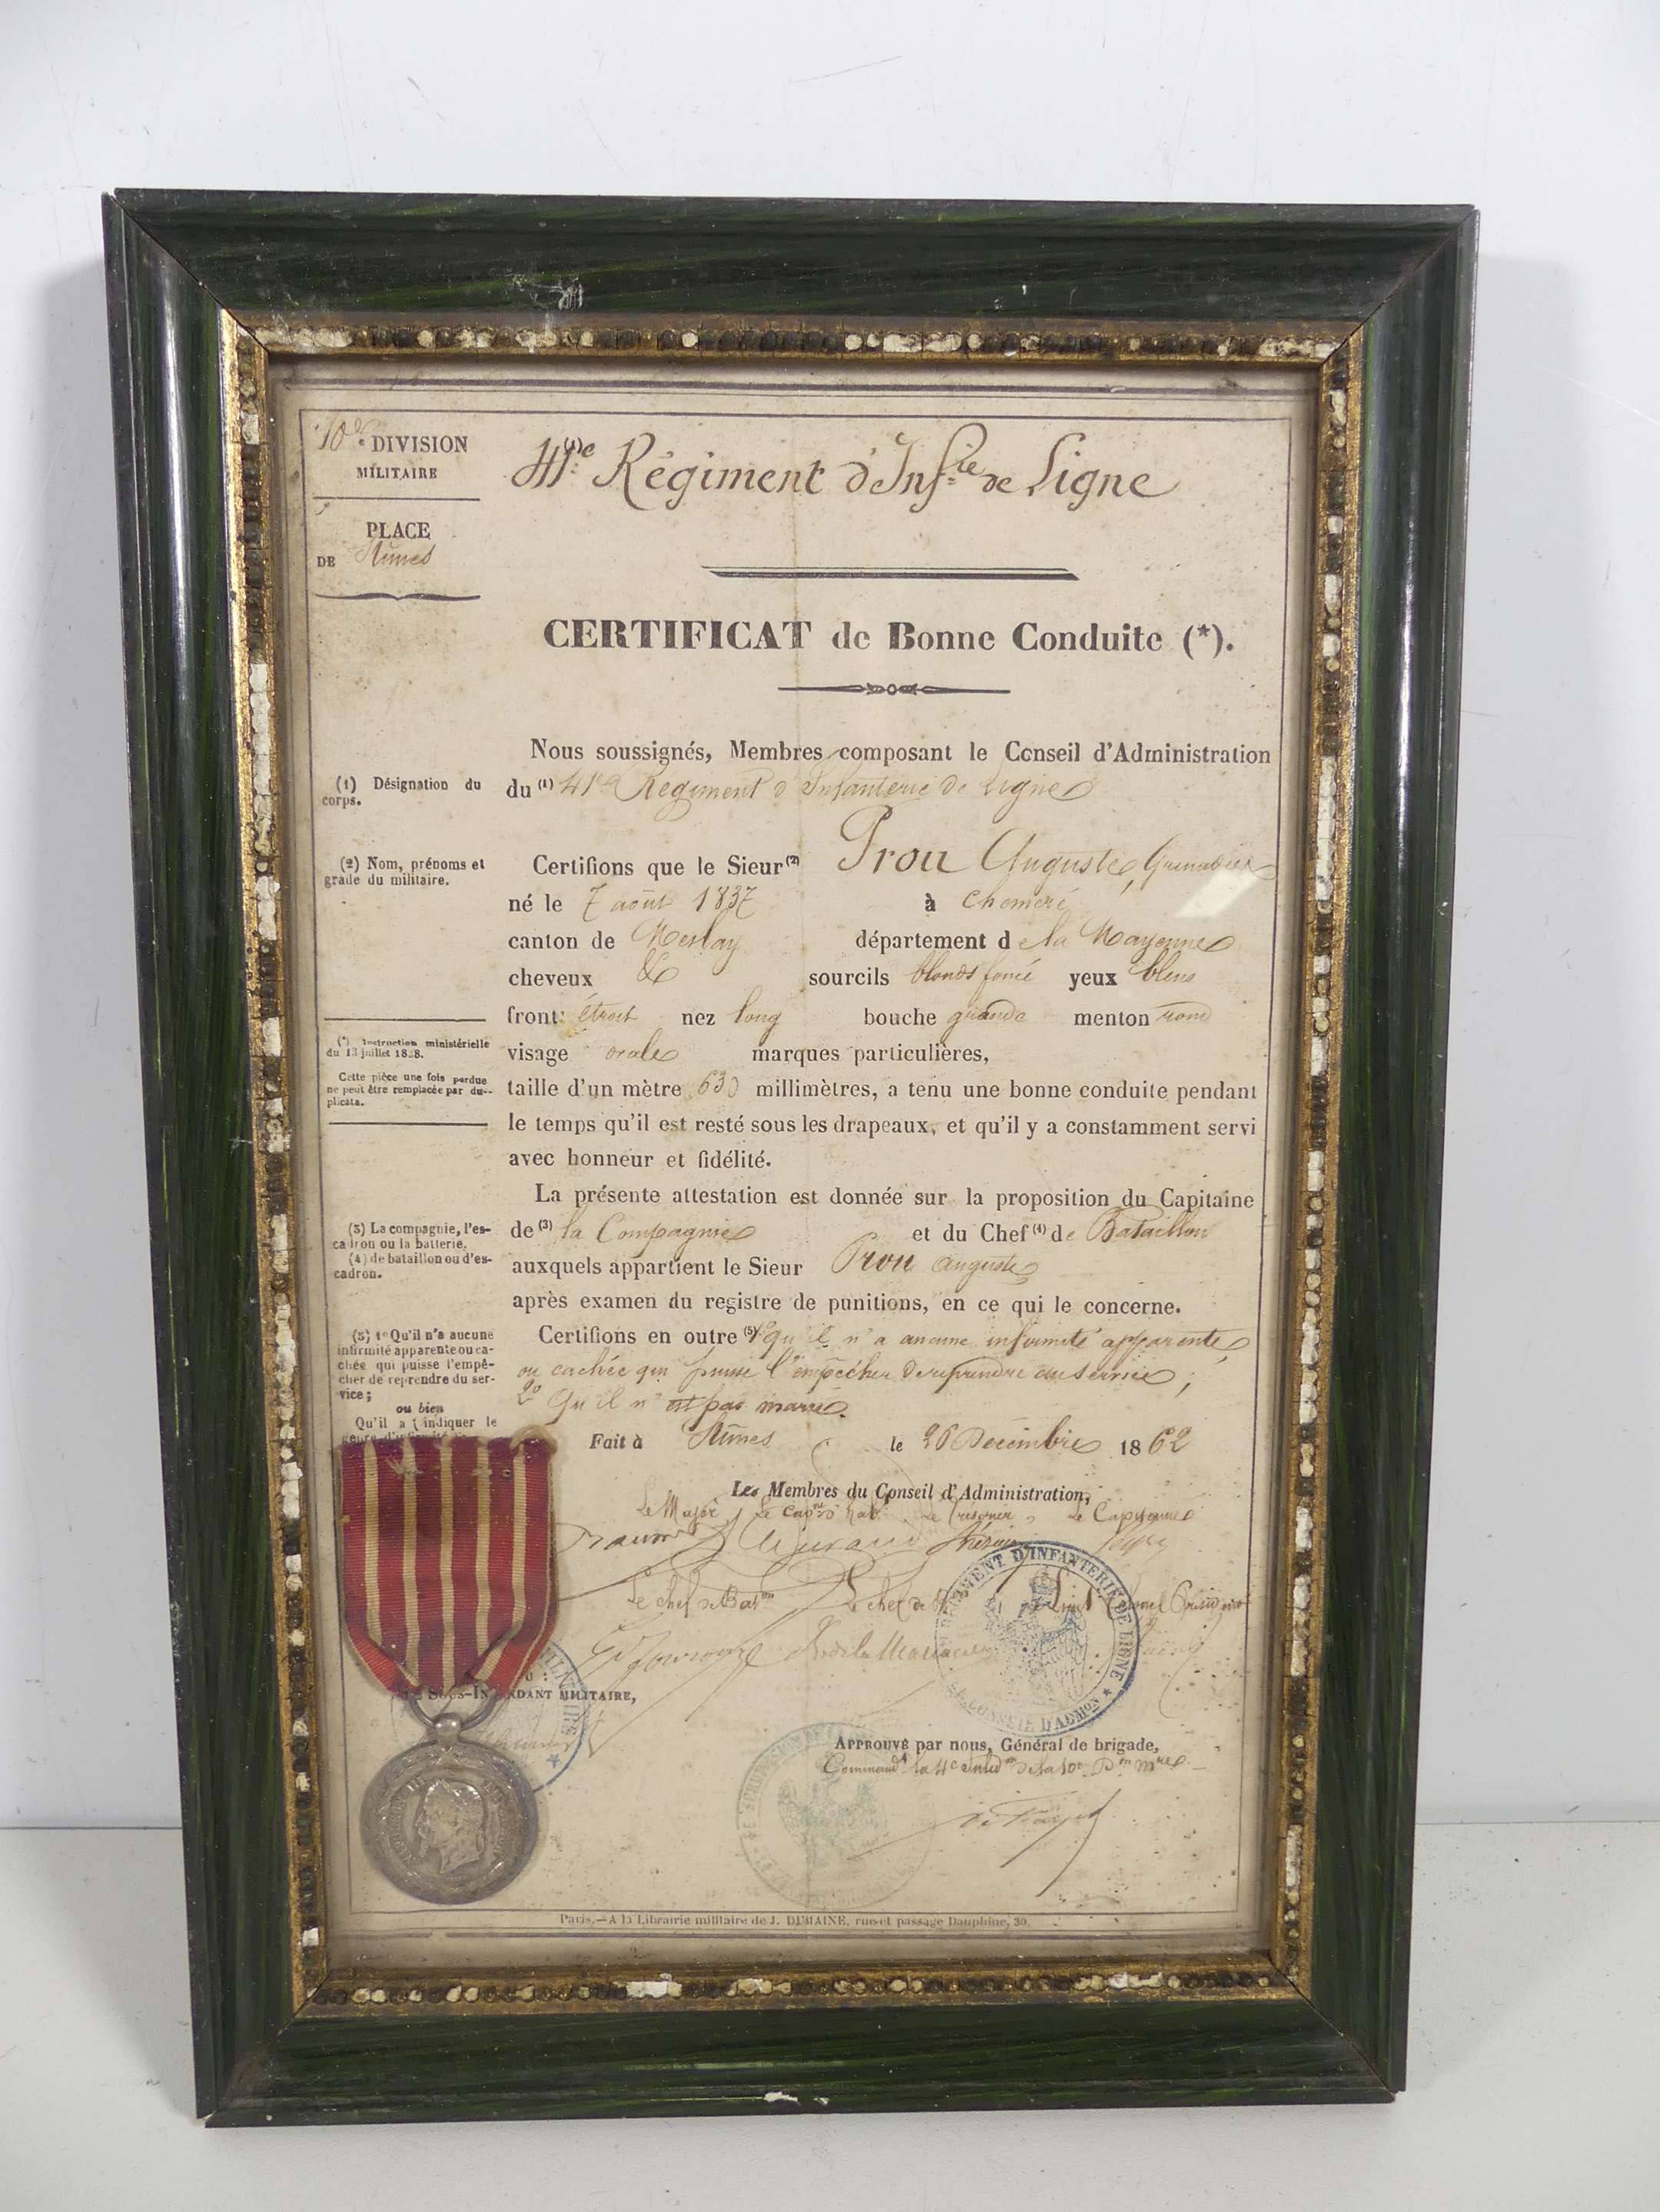 10e DIVISION
MILITAIRE
PLACE
DE Nîmes
41e Régiment d'Infie de Ligne
CERTIFICAT de Bonne Conduite (*).
Nous soussignés, Membres composant le Conseil d'Administration
(1) Désignation du
corps.
du (1) 41e Régiment d'Infanterie de Ligne
(2) Nom, prénoms et
grade du militaire.
Certifions que le Sieur (2) Prou Auguste, Grenadier
né le 7 août 1837 à Chemeré
canton de Meslay département de la Mayenne
cheveux & sourcils blonds foncé yeux bleus
front: étroit nez long bouche grande menton rond
(*) Instruction ministérielle
du 13 juillet 1858.
Cette pièce une fois perdue
ne peut être remplacée par du-
plicata.
visage ovale marques particulières,
taille d'un mètre 630 millimètres, a tenu une bonne conduite pendant
le temps qu'il est resté sous les drapeaux, et qu'il y a constamment servi
avec honneur et fidélité.
La présente attestation est donnée sur la proposition du Capitaine
(3) La compagnie, l'es-
cadron ou la batterie.
(4) de bataillon ou d'es-
cadron.
de (3) la Compagnie et du Chef (4) de Bataillon
auxquels appartient le Sieur Prou Auguste
après examen du registre de punitions, en ce qui le concerne.
(5) 1° Qu'il n'a aucune
infirmité apparente ou ca-
chée qui puisse l'empê-
cher de reprendre du ser-
vice;
ou bien
Qu'il a (indiquer le
genre d'infirmité
Certifions en outre (5) 1° qu'il n'a aucune infirmité apparente
ou cachée qui puisse l'empêcher de reprendre du service;
2° Qu'il n'est pas marié.
Fait à Nîmes le 26 Décembre 1862
Les Membres du Conseil d'Administration,
Le Major, Le Capne d'hab. Le Trésorier, Le Capitaine
Le chef de Baton Le chef de Lieut Colonel Président
RÉGIMENT D'INFANTERIE DE LIGNE
CONSEIL D'ADMON
SOUS-INTENDANT MILITAIRE,
APPROUVÉ par nous, Général de brigade,
Command la 4e Subdon de la 10e Don Mre
Paris.—A la Librairie militaire de J. DUMAINE, rue et passage Dauphine, 30.